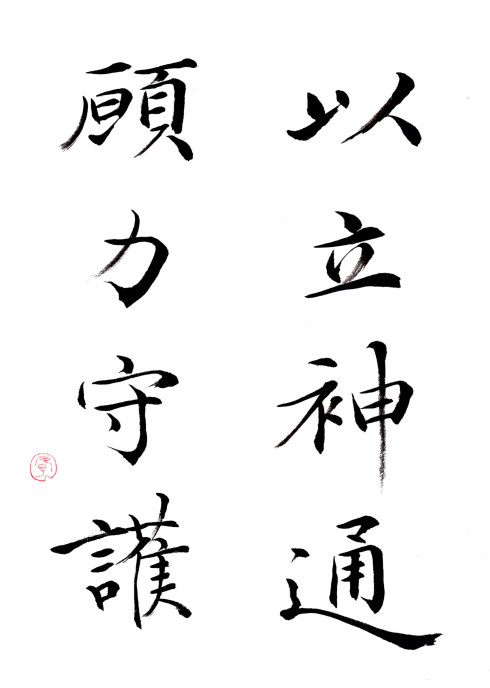 以立神通
願力守護